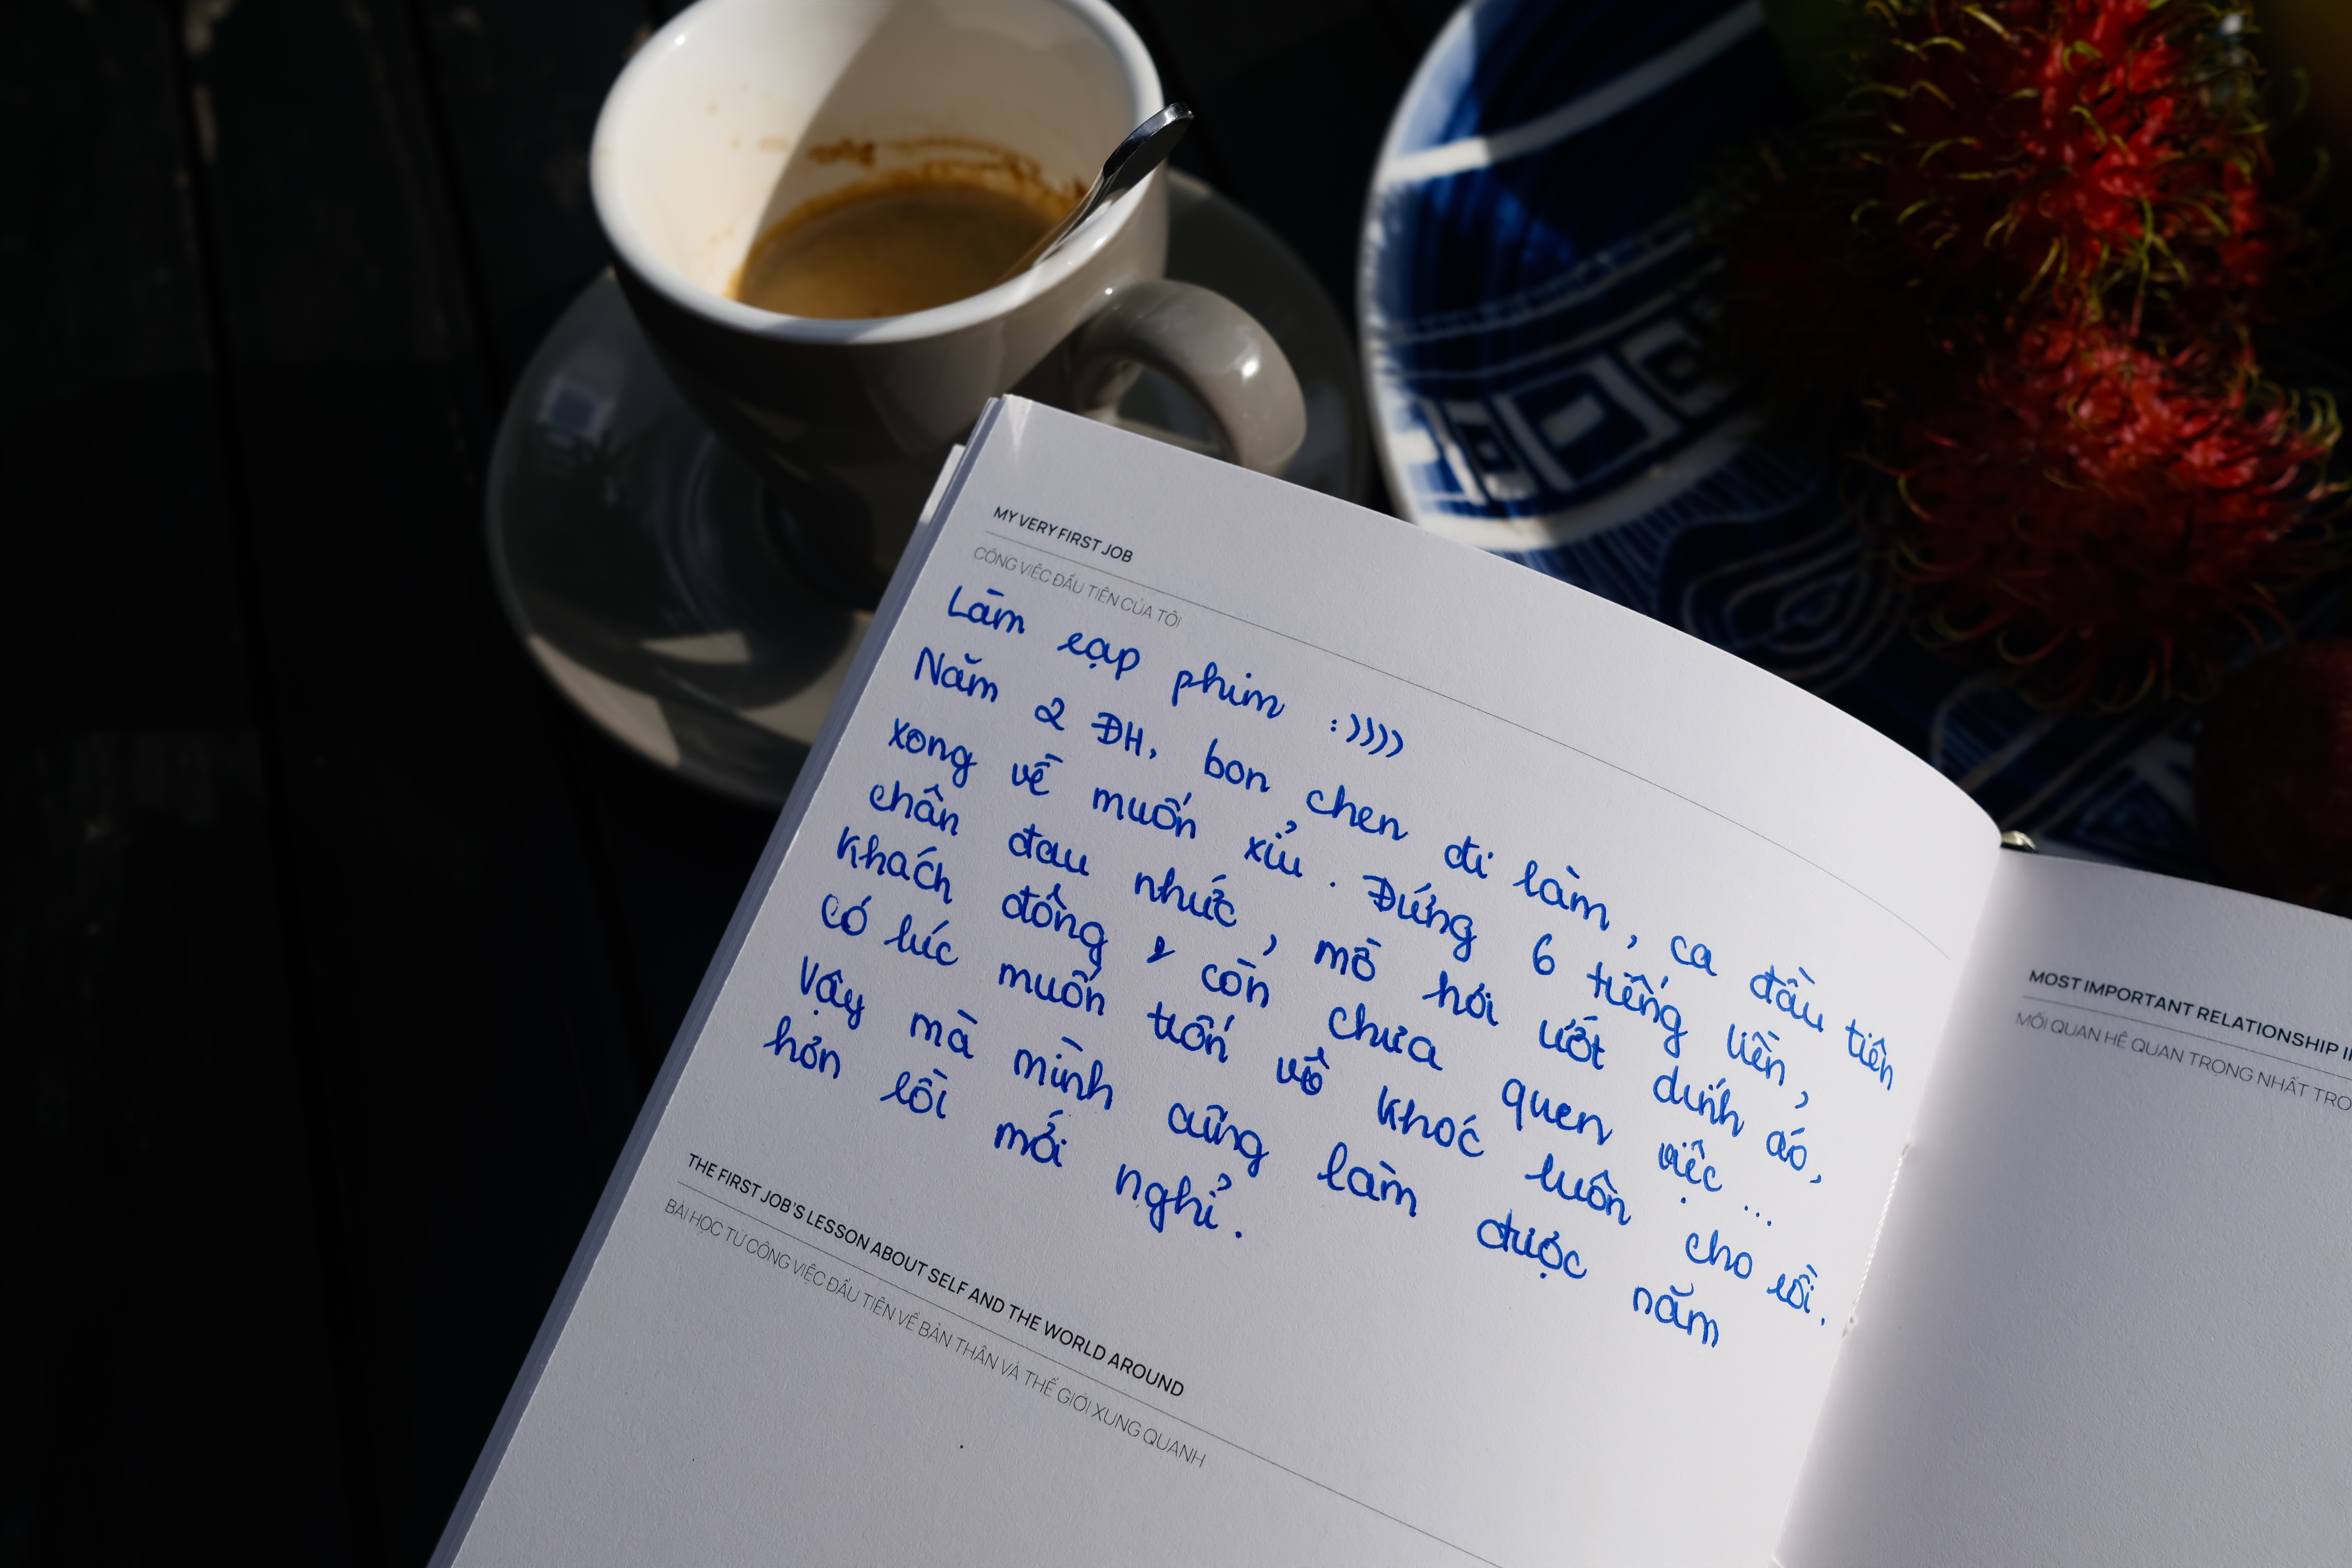 MY VERY FIRST JOB
CÔNG VIỆC ĐẦU TIÊN CỦA TÔI
Làm rạp phim :))))
Năm 2 ĐH, bon chen đi làm, ca đầu tiên
xong về muốn xỉu. Đứng 6 tiếng liền,
chân đau nhức, mồ hôi ướt dính áo,
khách đông & còn chưa quen việc...
có lúc muốn trốn về khóc luôn cho rồi.
Vậy mà mình cũng làm được năm
hơn rồi mới nghỉ.
THE FIRST JOB'S LESSON ABOUT SELF AND THE WORLD AROUND
BÀI HỌC TỪ CÔNG VIỆC ĐẦU TIÊN VỀ BẢN THÂN VÀ THẾ GIỚI XUNG QUANH
MOST IMPORTANT RELATIONSHIP
MỐI QUAN HỆ QUAN TRỌNG NHẤT